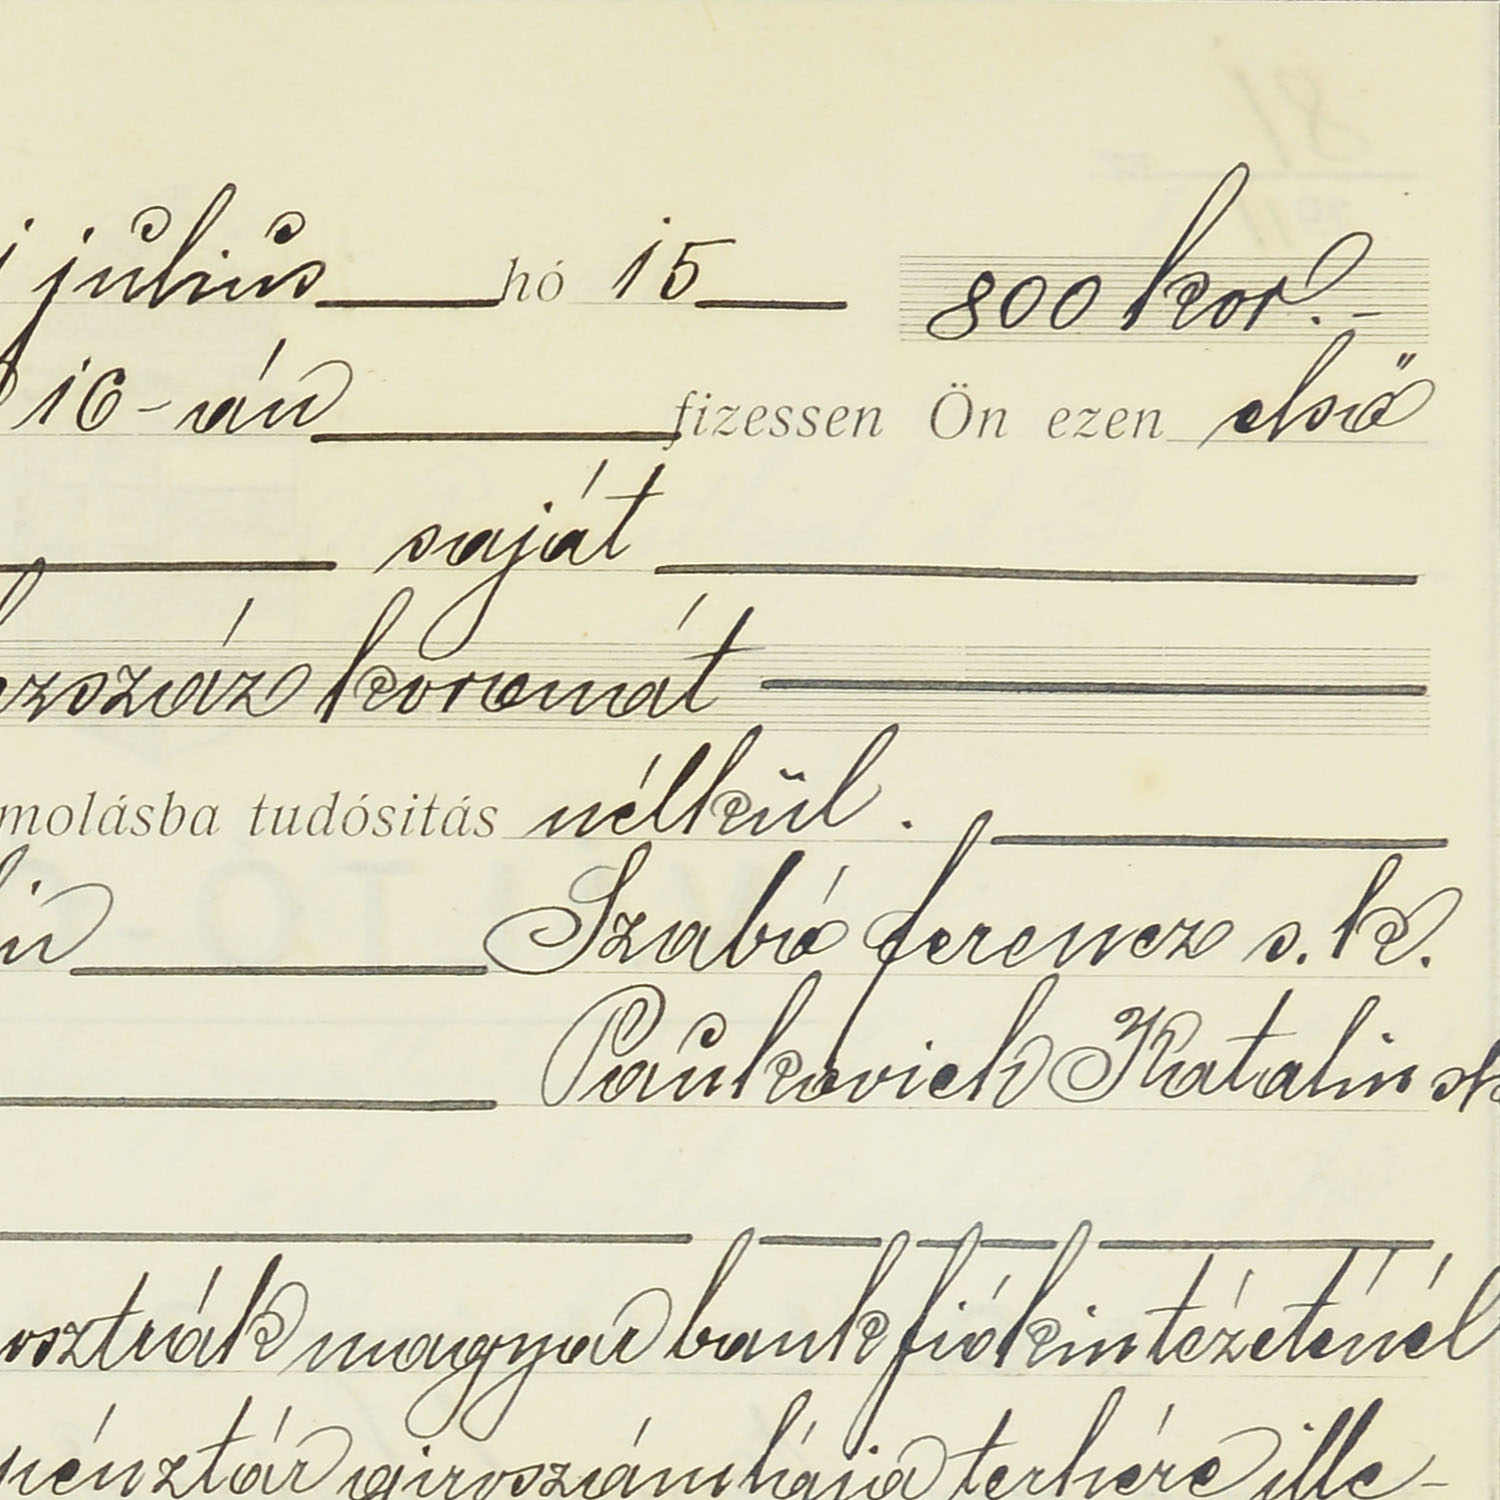 július hó 15 800 kor.-
16-án fizessen Ön ezen első
saját
koronát
tudósitás nélkül.
Szabó ferencz s.k.
Paukovich Katalin sk
osztrák magyar bank fiókintézeténél
pénztár giroszámlája terhére ille-